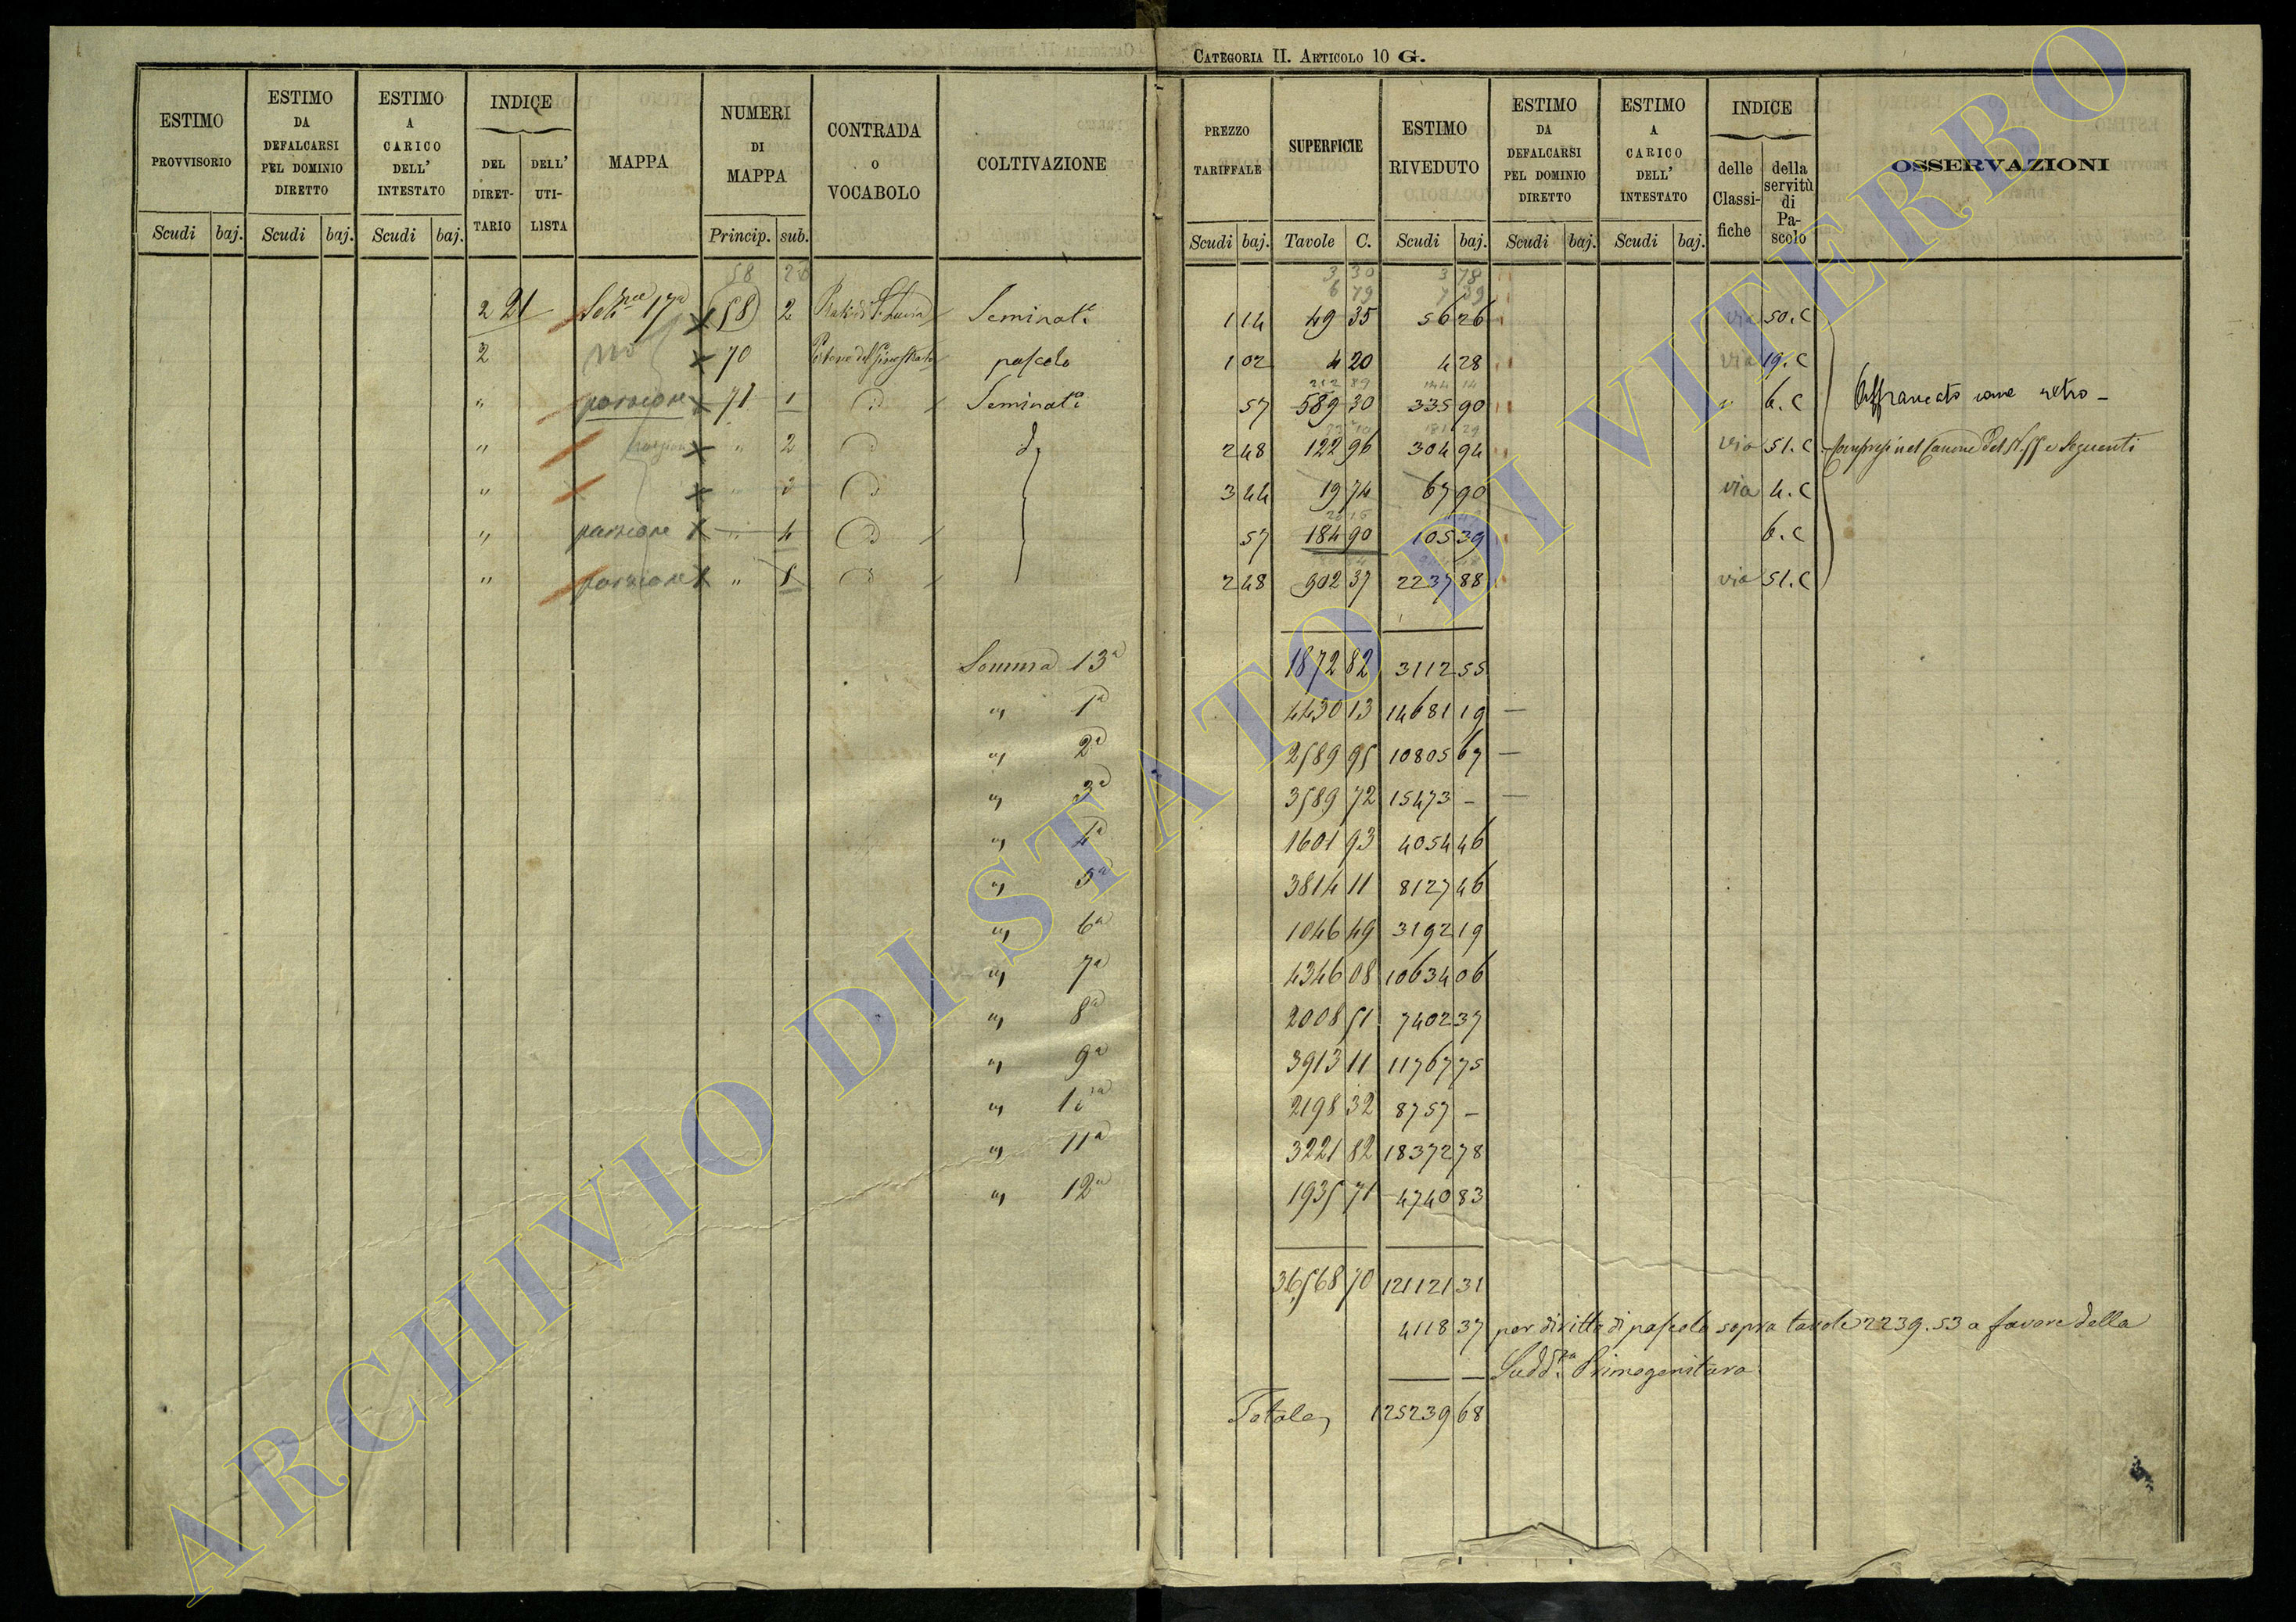 CATEGORIA II. ARTICOLO 10 G.
ESTIMO PROVVISORIO
ESTIMO DA DEFALCARSI PEL DOMINIO DIRETTO
ESTIMO A CARICO DELL' INTESTATO
INDICE
DEL DIRET-TARIO
DELL' UTI-LISTA
MAPPA
NUMERI DI MAPPA
CONTRADA o VOCABOLO
COLTIVAZIONE
PREZZO TARIFFALE
SUPERFICIE
ESTIMO RIVEDUTO
ESTIMO DA DEFALCARSI PEL DOMINIO DIRETTO
ESTIMO A CARICO DELL' INTESTATO
INDICE
delle Classi-fiche
della servitù di Pa-scolo
OSSERVAZIONI
Scudi baj. Scudi baj. Scudi baj. Princip. sub.
Scudi baj. Tavole C. Scudi baj. Scudi baj. Scudi baj.
58
3 30 3 78
6 79 7 39
2 21 17a 58 2 Seminat.o 1 14 49 35 56 26 via 50.C
2 no 70 pascolo 1 02 4 20 4 28 via 19.C
212 89
" porzione 71 1 D Seminat.o 57 589 30 335 90 " 6.C Affrancato come retro
" porzione " 2 D d 2 48 122 96 304 94 via 51.C Compresi nel Canone del N. e Seguenti
" " 3 D 3 44 19 74 67 90 via 4.C
" porzione " 4 D 57 184 90 105 39 6.C
" porzione " 5 D 2 48 902 37 2237 88 via 51.C
Somma 13a 1872 82 3112 55
" 1a 4430 13 14681 19 —
" 2a 2589 95 10805 67 —
" 3a 3589 72 15473 — —
" 4a 1601 93 4054 46
" 5a 3814 11 8127 46
" 6a 1046 49 3192 19
" 7a 4346 08 10634 06
" 8a 2008 51 7402 37
" 9a 3913 11 11767 75
" 10ma 2198 32 8757 —
" 11a 3221 82 18372 78
" 12a 1935 71 4740 83
36,568 70 121121 31
4118 37 per diritto di pascolo sopra tavole 2239.53 a favore della
Sudd.a Primogenitura
Totale 125239 68
ARCHIVIO DI STATO DI VITERBO